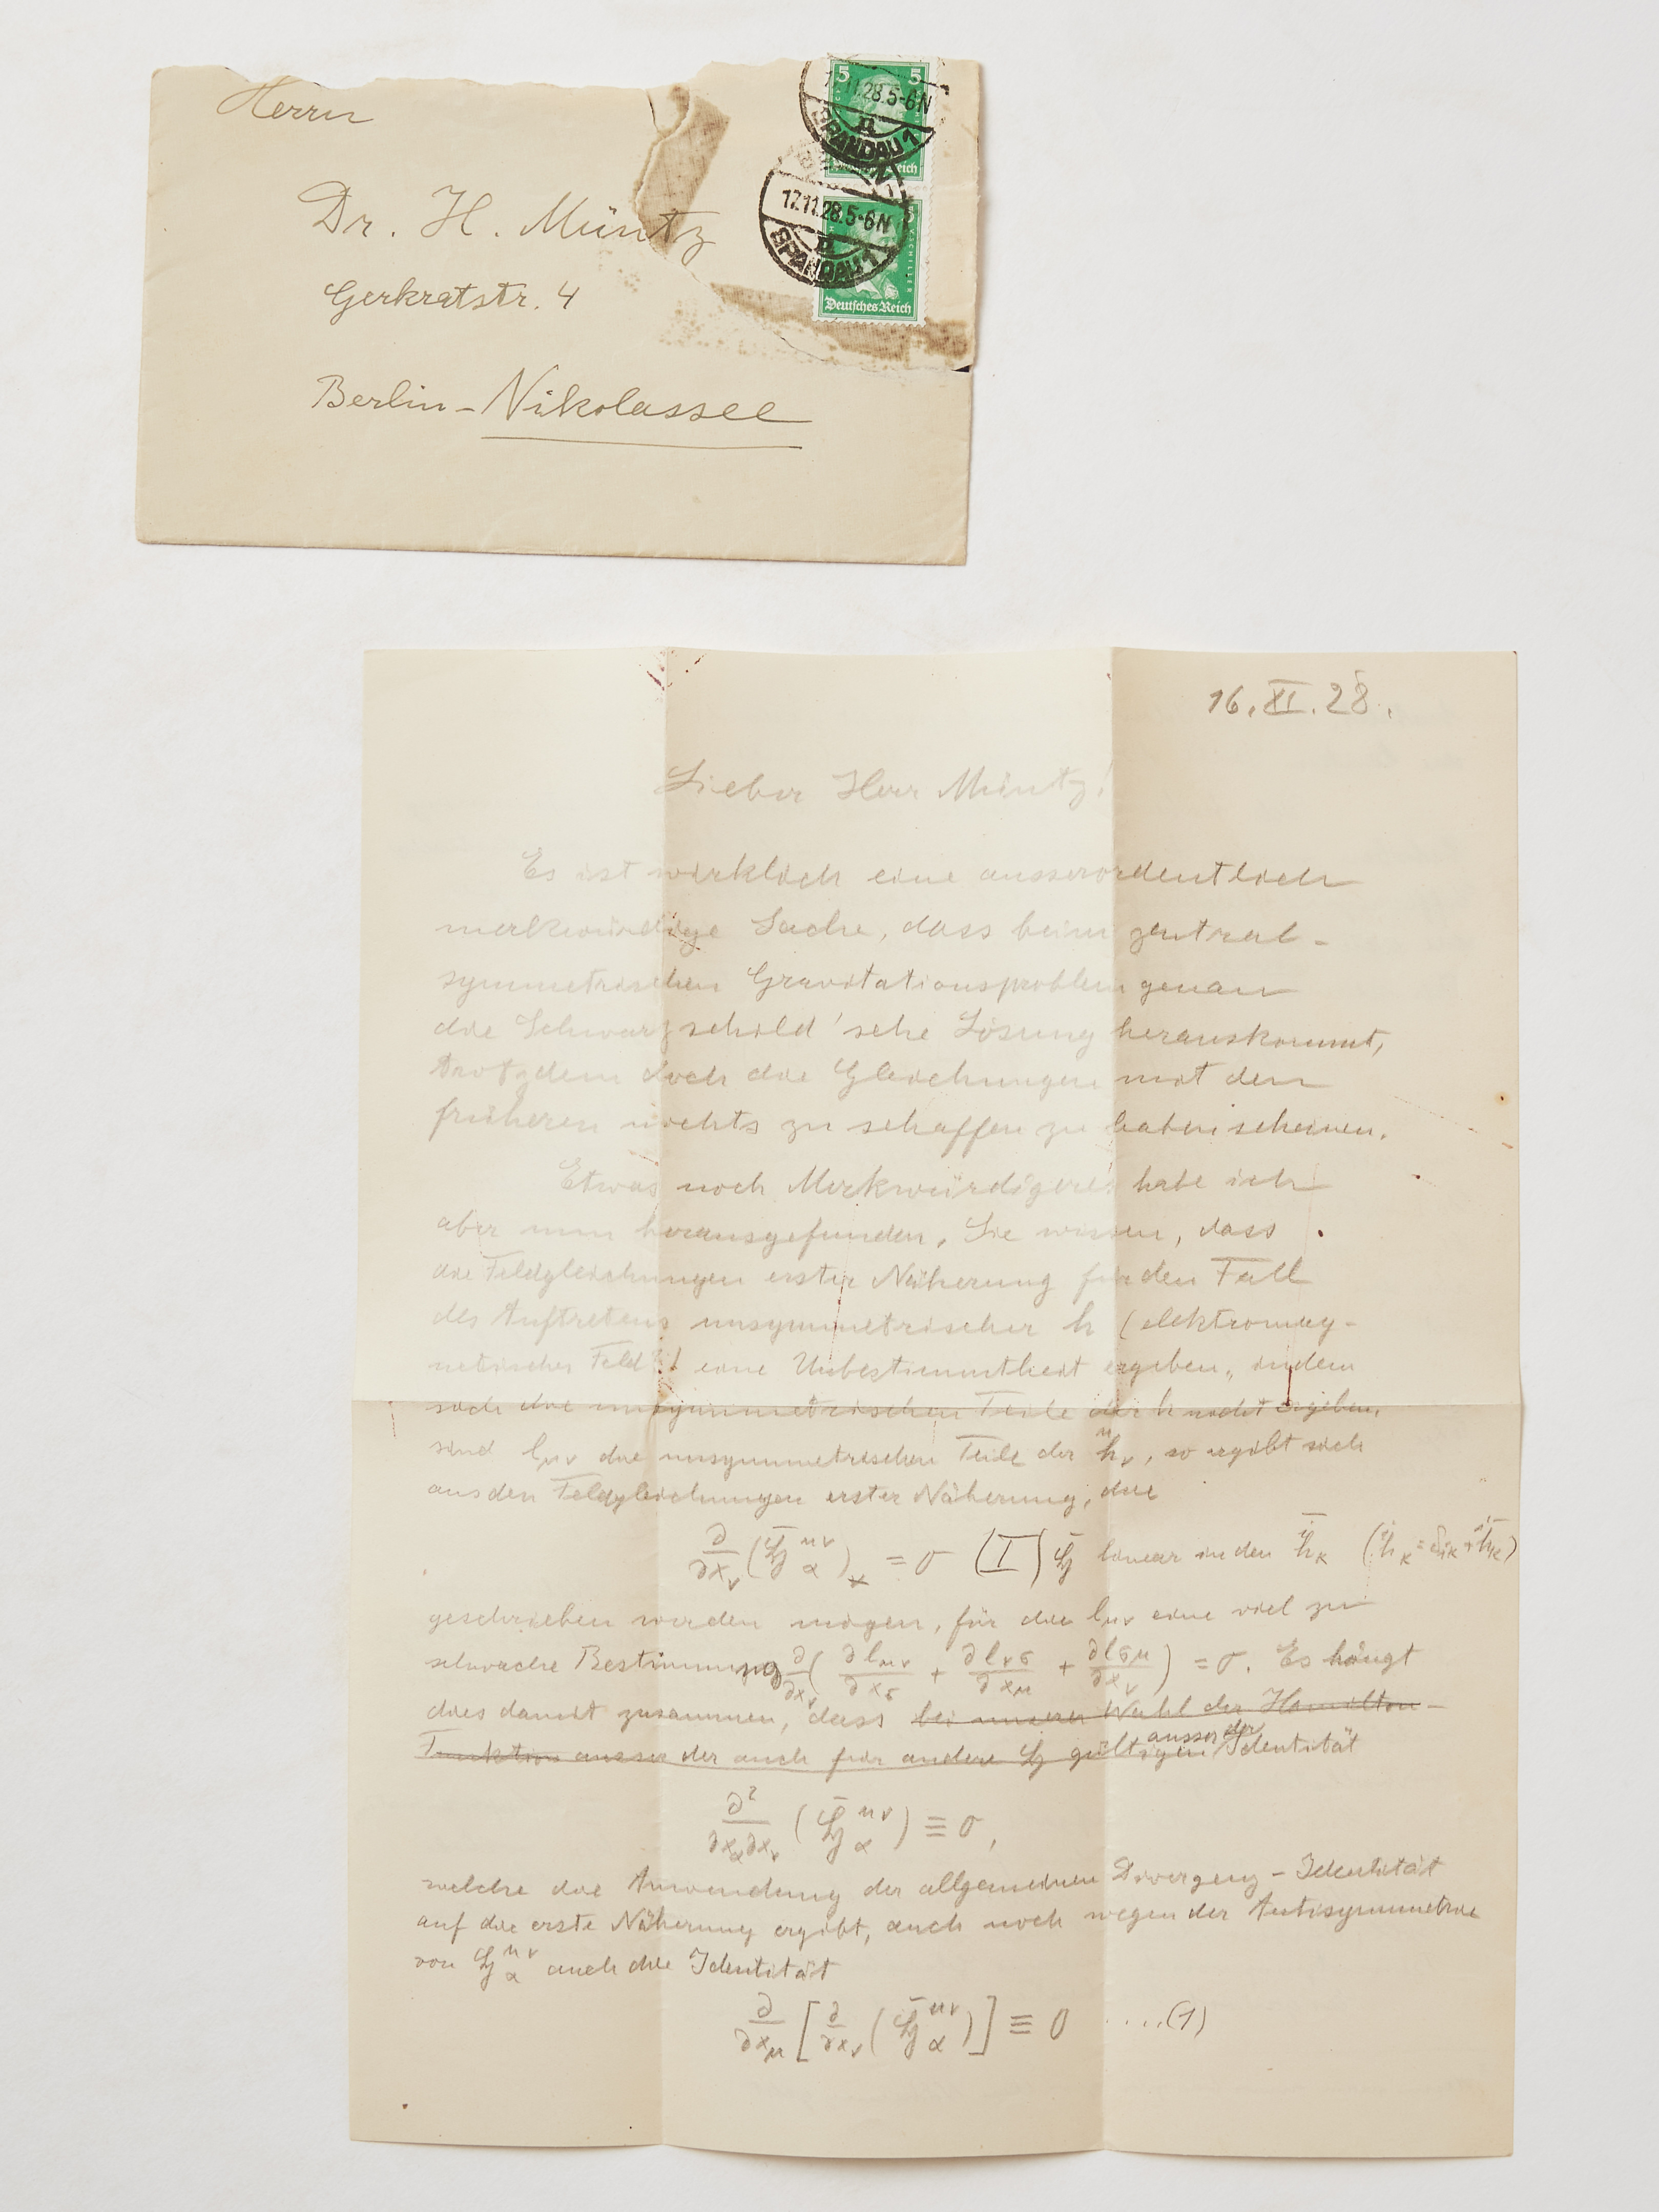 Herrn
Dr. H. Müntz
Gerkratstr. 4
Berlin-Nikolassee
5 5
11.28.5-6N
SPANDAU 1
17.11.28.5-6N
SPANDAU 1
Deutsches Reich
16. XI. 28.
Lieber Herr Müntz!
Es ist wirklich eine ausserordentlich
merkwürdige Sache, dass beim zentral-
symmetrischen Gravitationsproblem genau
die Schwarzschild'sche Lösung herauskommt,
trotzdem doch die Gleichungen mit den
früheren nichts zu schaffen zu haben scheinen.
Etwas noch Merkwürdigeres habe ich
aber nun herausgefunden. Sie wissen, dass
die Feldgleichungen erster Näherung für den Fall
des Auftretens unsymmetrischer h (elektromag-
netisches Feld!) eine Unbestimmtheit ergeben, indem
sich die unsymmetrischen Teile der h nicht ergeben.
sind l_μν die unsymmetrischen Teile der h^μ_ν, so ergibt sich
aus den Feldgleichungen erster Näherung, die
∂/∂x_ν (𝔥̄^μν_α)_x = 0 (I) 𝔥̄ linear in den h̄_κ (h_κ = δ_iκ + h̄_iκ)
geschrieben werden mögen, für die l_μν eine viel zu
schwache Bestimmung ∂/∂x_ν (∂l_μν/∂x_σ + ∂l_νσ/∂x_μ + ∂l_σμ/∂x_ν) = 0. Es hängt
dies damit zusammen, dass bei unserer Wahl der Hamilton-
Funktion ausser der auch für andere 𝔥 gültigen ausser der Identität
∂²/∂x_α∂x_ν (𝔥̄^μν_α) ≡ 0,
welche die Anwendung der allgemeinen Divergenz-Identität
auf die erste Näherung ergibt, auch noch wegen der Antisymmetrie
von 𝔥^μν_α auch die Identität
∂/∂x_μ [∂/∂x_ν (𝔥̄^μν_α)] ≡ 0 .....(1)